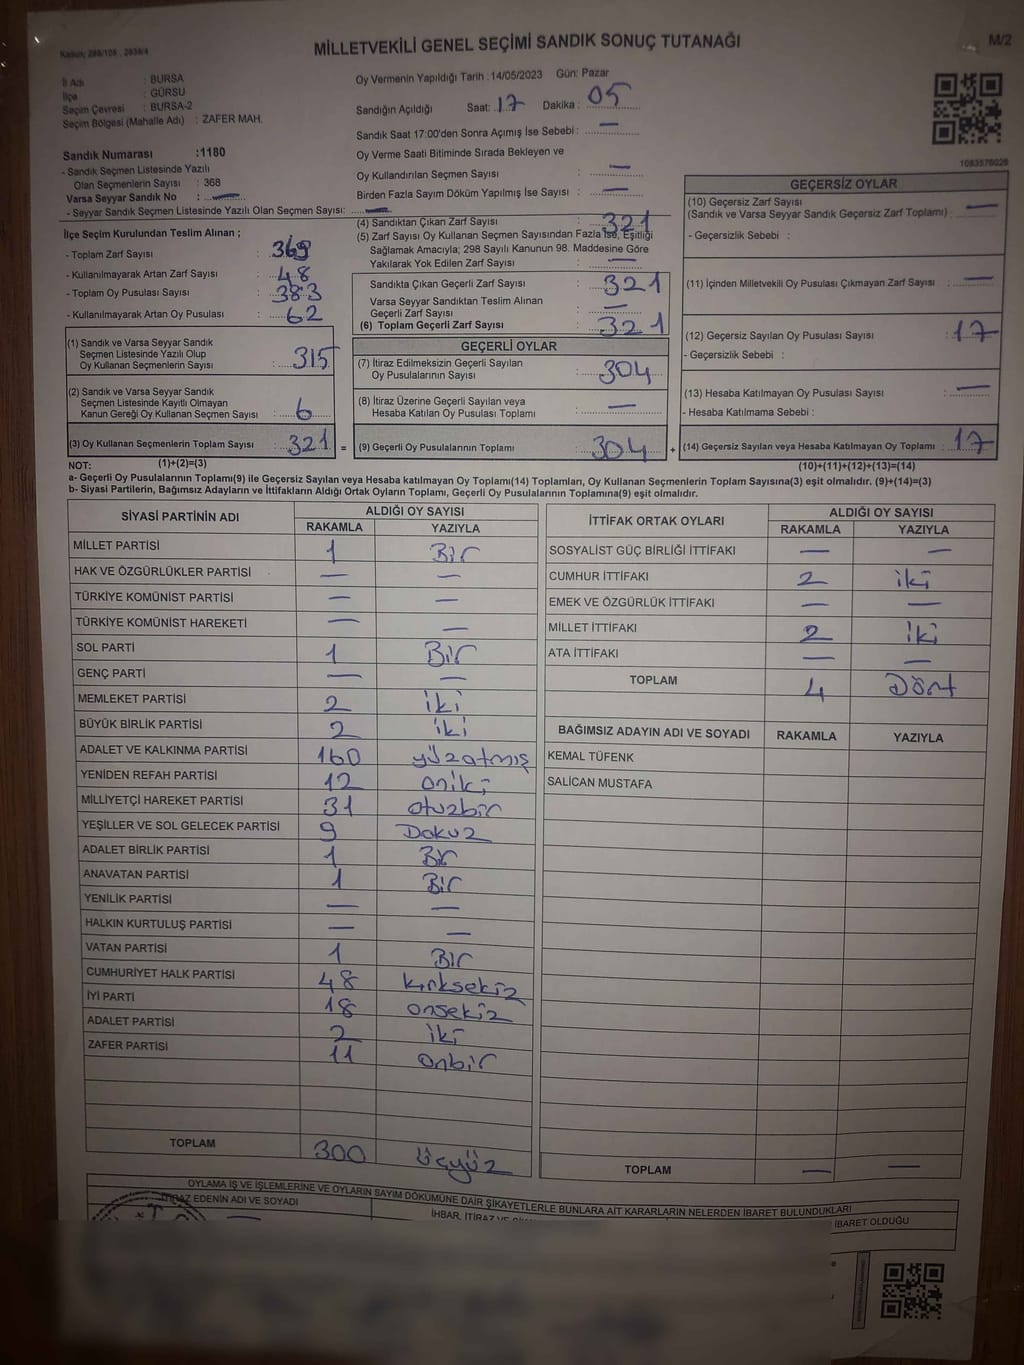 Kanun; 298/105 , 2839/4
MİLLETVEKİLİ GENEL SEÇİMİ SANDIK SONUÇ TUTANAĞI
M/2
İl Adı : BURSA
İlçe : GÜRSU
Seçim Çevresi : BURSA-2
Seçim Bölgesi (Mahalle Adı) : ZAFER MAH.
Oy Vermenin Yapıldığı Tarih : 14/05/2023 Gün: Pazar
Sandığın Açıldığı Saat: 17 Dakika : 05
Sandık Saat 17:00'den Sonra Açımış İse Sebebi : —
Oy Verme Saati Bitiminde Sırada Bekleyen ve
Oy Kullandırılan Seçmen Sayısı : —
Birden Fazla Sayım Döküm Yapılmış İse Sayısı : —
1083576026
Sandık Numarası :1180
- Sandık Seçmen Listesinde Yazılı
Olan Seçmenlerin Sayısı : 368
Varsa Seyyar Sandık No : —
- Seyyar Sandık Seçmen Listesinde Yazılı Olan Seçmen Sayısı: —
İlçe Seçim Kurulundan Teslim Alınan ;
- Toplam Zarf Sayısı : 369
- Kullanılmayarak Artan Zarf Sayısı : 48
- Toplam Oy Pusulası Sayısı : 383
- Kullanılmayarak Artan Oy Pusulası : 62
(1) Sandık ve Varsa Seyyar Sandık
Seçmen Listesinde Yazılı Olup
Oy Kullanan Seçmenlerin Sayısı : 315
(2) Sandık ve Varsa Seyyar Sandık
Seçmen Listesinde Kayıtlı Olmayan
Kanun Gereği Oy Kullanan Seçmen Sayısı : 6
(3) Oy Kullanan Seçmenlerin Toplam Sayısı : 321 =
(4) Sandıktan Çıkan Zarf Sayısı : 321
(5) Zarf Sayısı Oy Kullanan Seçmen Sayısından Fazla İse, Eşitliği
Sağlamak Amacıyla; 298 Sayılı Kanunun 98. Maddesine Göre
Yakılarak Yok Edilen Zarf Sayısı : —
Sandıkta Çıkan Geçerli Zarf Sayısı : 321
Varsa Seyyar Sandıktan Teslim Alınan
Geçerli Zarf Sayısı : —
(6) Toplam Geçerli Zarf Sayısı : 321
GEÇERLİ OYLAR
(7) İtiraz Edilmeksizin Geçerli Sayılan
Oy Pusulalarının Sayısı : 304
(8) İtiraz Üzerine Geçerli Sayılan veya
Hesaba Katılan Oy Pusulası Toplamı : —
(9) Geçerli Oy Pusulalarının Toplamı : 304 +
GEÇERSİZ OYLAR
(10) Geçersiz Zarf Sayısı
(Sandık ve Varsa Seyyar Sandık Geçersiz Zarf Toplamı) : —
- Geçersizlik Sebebi :
(11) İçinden Milletvekili Oy Pusulası Çıkmayan Zarf Sayısı : —
(12) Geçersiz Sayılan Oy Pusulası Sayısı : 17
- Geçersizlik Sebebi :
(13) Hesaba Katılmayan Oy Pusulası Sayısı : —
- Hesaba Katılmama Sebebi :
(14) Geçersiz Sayılan veya Hesaba Katılmayan Oy Toplamı : 17
NOT: (1)+(2)=(3) (10)+(11)+(12)+(13)=(14)
a- Geçerli Oy Pusulalarının Toplamı(9) ile Geçersiz Sayılan veya Hesaba katılmayan Oy Toplamı(14) Toplamları, Oy Kullanan Seçmenlerin Toplam Sayısına(3) eşit olmalıdır. (9)+(14)=(3)
b- Siyasi Partilerin, Bağımsız Adayların ve İttifakların Aldığı Ortak Oyların Toplamı, Geçerli Oy Pusulalarının Toplamına(9) eşit olmalıdır.
SİYASİ PARTİNİN ADI ALDIĞI OY SAYISI
RAKAMLA YAZIYLA
MİLLET PARTİSİ 1 Bir
HAK VE ÖZGÜRLÜKLER PARTİSİ — —
TÜRKİYE KOMÜNİST PARTİSİ — —
TÜRKİYE KOMÜNİST HAREKETİ — —
SOL PARTİ 1 Bir
GENÇ PARTİ — —
MEMLEKET PARTİSİ 2 iki
BÜYÜK BİRLİK PARTİSİ 2 iki
ADALET VE KALKINMA PARTİSİ 160 yüzatmış
YENİDEN REFAH PARTİSİ 12 oniki
MİLLİYETÇİ HAREKET PARTİSİ 31 otuzbir
YEŞİLLER VE SOL GELECEK PARTİSİ 9 Dokuz
ADALET BİRLİK PARTİSİ 1 Bir
ANAVATAN PARTİSİ 1 Bir
YENİLİK PARTİSİ — —
HALKIN KURTULUŞ PARTİSİ — —
VATAN PARTİSİ 1 Bir
CUMHURİYET HALK PARTİSİ 48 kırksekiz
İYİ PARTİ 18 onsekiz
ADALET PARTİSİ 2 iki
ZAFER PARTİSİ 11 onbir
TOPLAM 300 üçyüz
İTTİFAK ORTAK OYLARI ALDIĞI OY SAYISI
RAKAMLA YAZIYLA
SOSYALİST GÜÇ BİRLİĞİ İTTİFAKI — —
CUMHUR İTTİFAKI 2 iki
EMEK VE ÖZGÜRLÜK İTTİFAKI — —
MİLLET İTTİFAKI 2 iki
ATA İTTİFAKI — —
TOPLAM 4 Dört
BAĞIMSIZ ADAYIN ADI VE SOYADI RAKAMLA YAZIYLA
KEMAL TÜFENK
SALİCAN MUSTAFA
TOPLAM — —
OYLAMA İŞ VE İŞLEMLERİNE VE OYLARIN SAYIM DÖKÜMÜNE DAİR ŞİKAYETLERLE BUNLARA AİT KARARLARIN NELERDEN İBARET BULUNDUKLARI
İTİRAZ EDENİN ADI VE SOYADI
İHBAR, İTİRAZ İBARET OLDUĞU